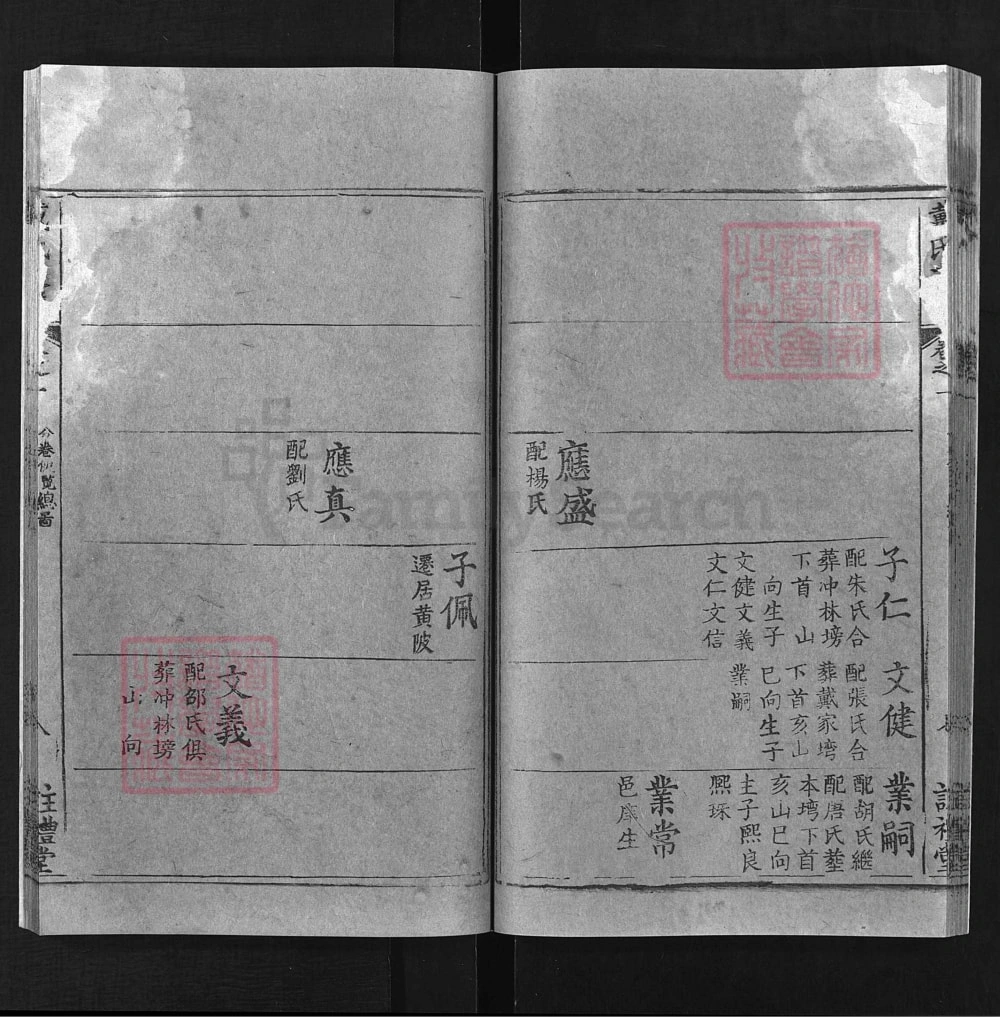 戴氏
卷之一
註禮堂
應盛
配楊氏
子仁
配朱氏合
葬冲林塝
下首 山
向生子
文健文義
文仁文信
文健
配張氏合
葬戴家塆
下首亥山
巳向生子
業嗣
業嗣
配胡氏繼
配唐氏塟
本塆下首
亥山巳向
生子熙良
熙珠
業常
邑庠生
應真
配劉氏
子佩
遷居黄陂
文義
配邵氏俱
葬冲林塝
山 向
卷之一
分卷 覽總畣
註禮堂